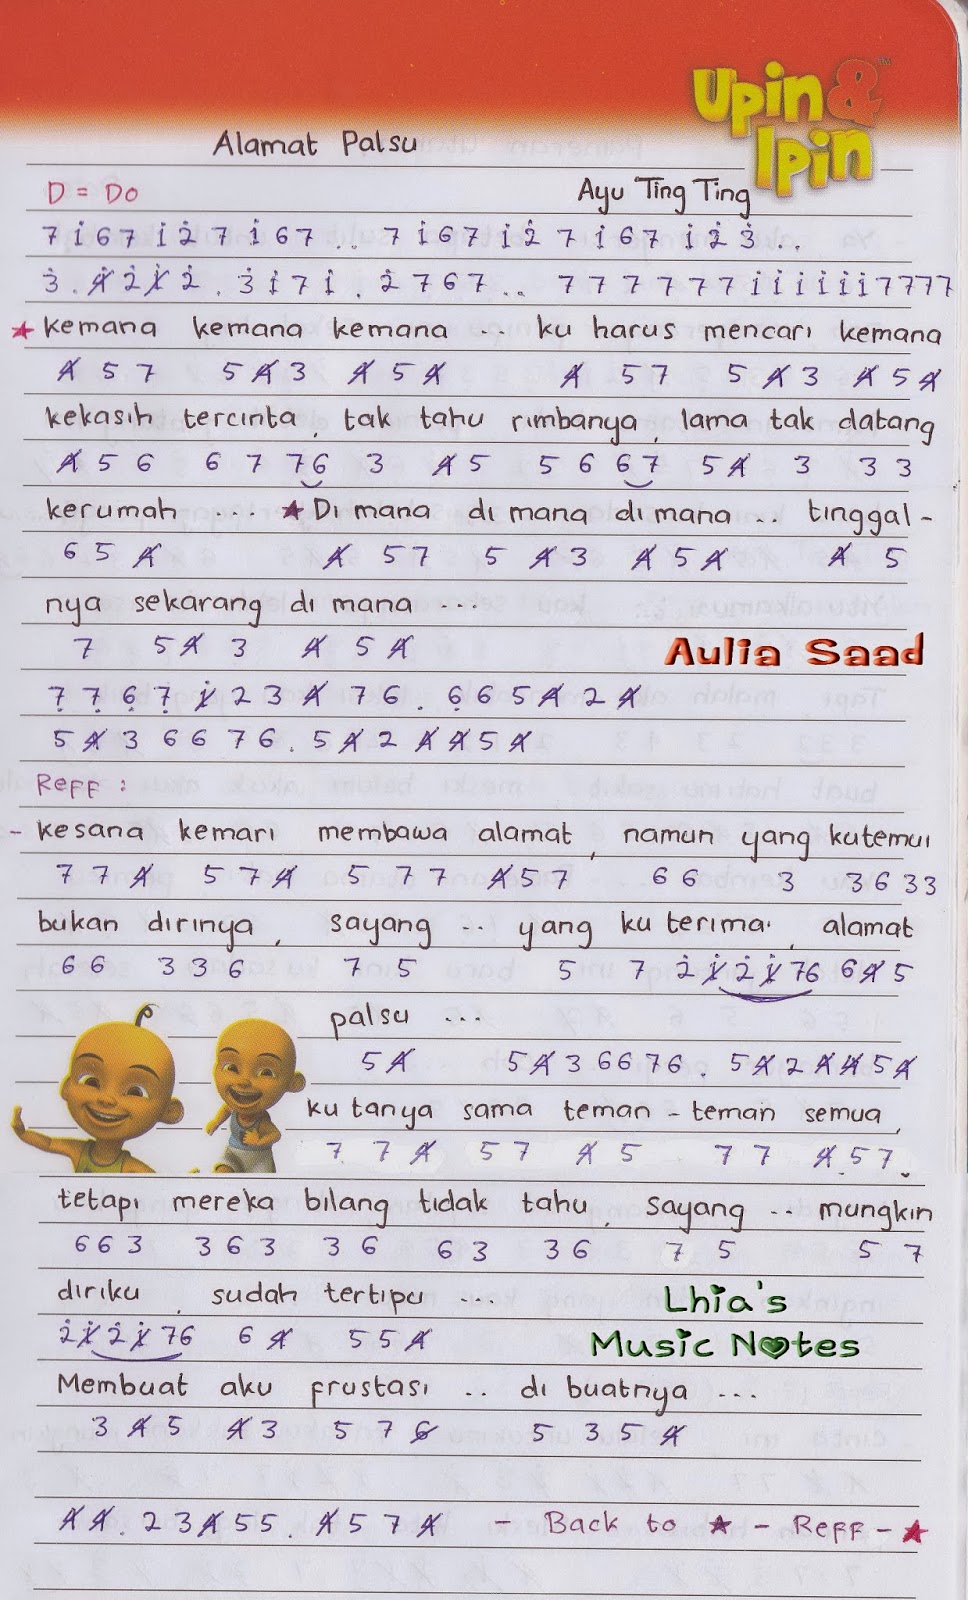 Upin & Ipin
Alamat Palsu
D = Do
Ayu Ting Ting
7 i̇ 6 7 i̇ 2̇ 7 i̇ 6 7 . . 7 i̇ 6 7 i̇ 2̇ 7 i̇ 6 7 i̇ 2̇ 3̇ ...
3̇ . 4̸̇ 2̇ 1̸̇ 2̇ . 3̇ i̇ 7 i̇ . 2̇ 7 6 7 .. 7 7 7 7 7 7 7 i̇ i̇ i̇ i̇ i̇ i̇ 7 7 7 7
★ kemana kemana kemana ... ku harus mencari kemana
4̸ 5 7 5 4̸ 3 4̸ 5 4̸ 4̸ 5 7 5 4̸ 3 4̸ 5 4̸
kekasih tercinta, tak tahu rimbanya, lama tak datang
4̸ 5 6 6 7 7 6 3 4̸ 5 5 6 6 7 5 4̸ 3 3 3
kerumah .... ★ Di mana di mana di mana .. tinggal -
6 5 4̸ 4̸ 5 7 5 4̸ 3 4̸ 5 4̸ 4̸ 5
nya sekarang di mana ...
7 5 4̸ 3 4̸ 5 4̸
Aulia Saad
7̣ 7̣ 6̣ 7̣ 1̸ 2 3 4̸ 7 6 . 6̣ 6 5 4̸ 2 4̸
5 4̸ 3 6 6 7 6 . 5 4̸ 2 4̸ 4̸ 5 4̸
Reff :
- kesana kemari membawa alamat, namun yang kutemui
7 7 4̸ 5 7 4̸ 5 7 7 4̸ 5 7 6 6 3 3 6 3 3
bukan dirinya, sayang .. yang ku terima, alamat
6 6 3 3 6 7 5 5 7 2̇ 1̸̇ 2̇ 1̸̇ 7 6 6 4̸ 5
palsu ...
5 4̸ 5 4̸ 3 6 6 7 6 . 5 4̸ 2 4̸ 4̸ 5 4̸
ku tanya sama teman - teman semua,
7 7 4̸ 5 7 4̸ 5 7 7 4̸ 5 7
tetapi mereka bilang tidak tahu, sayang .. mungkin
6 6 3 3 6 3 3 6 6 3 3 6 7 5 5 7
diriku, sudah tertipu ...
2̇ 1̸̇ 2̇ 1̸̇ 7 6 6 4̸ 5 5 4̸
Lhia's
Music Notes
Membuat aku frustasi .. di buatnya ...
3 4̸ 5 4̸ 3 5 7 6̸ 5 3 5 4̸
4̸ 4̸ . 2 3 4̸ 5 5 . 4̸ 5 7 4̸ - Back to ★ - Reff - ★